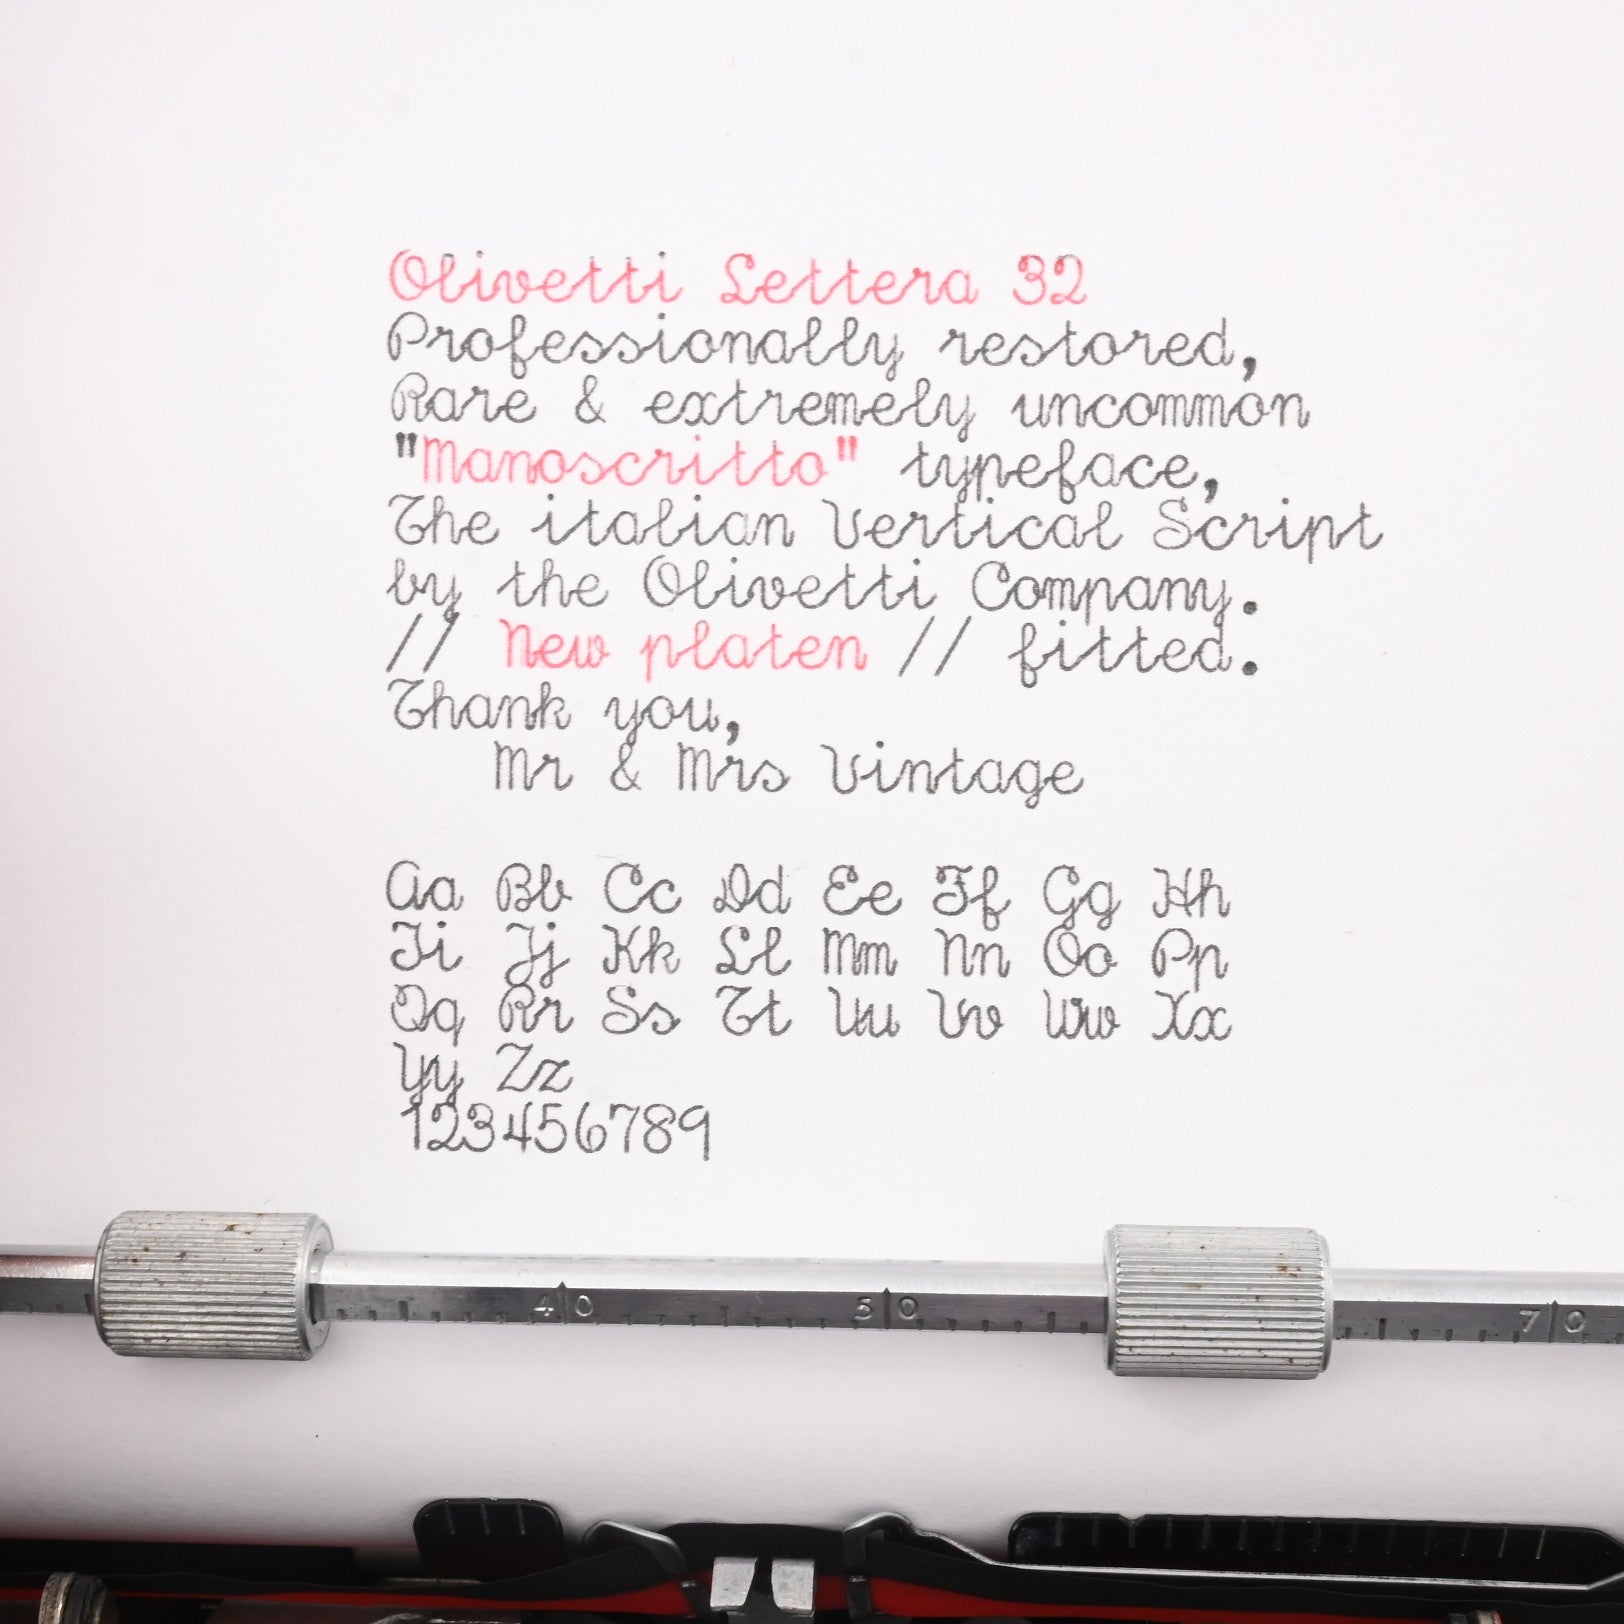 Olivetti Lettera 32
Professionally restored,
Rare & extremely uncommon
"Manoscritto" typeface,
The italian Vertical Script
by the Olivetti Company.
// New platen // fitted.
Thank you,
Mr & Mrs Vintage
Aa Bb Cc Dd Ee Ff Gg Hh
Ii Jj Kk Ll Mm Nn Oo Pp
Qq Rr Ss Tt Uu Vv Ww Xx
Yy Zz
123456789
40 50 70